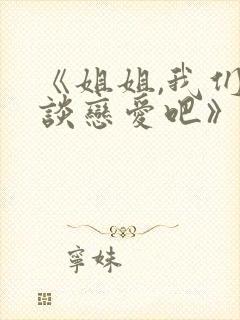 《姐姐,我们
談戀愛吧》
寧妹